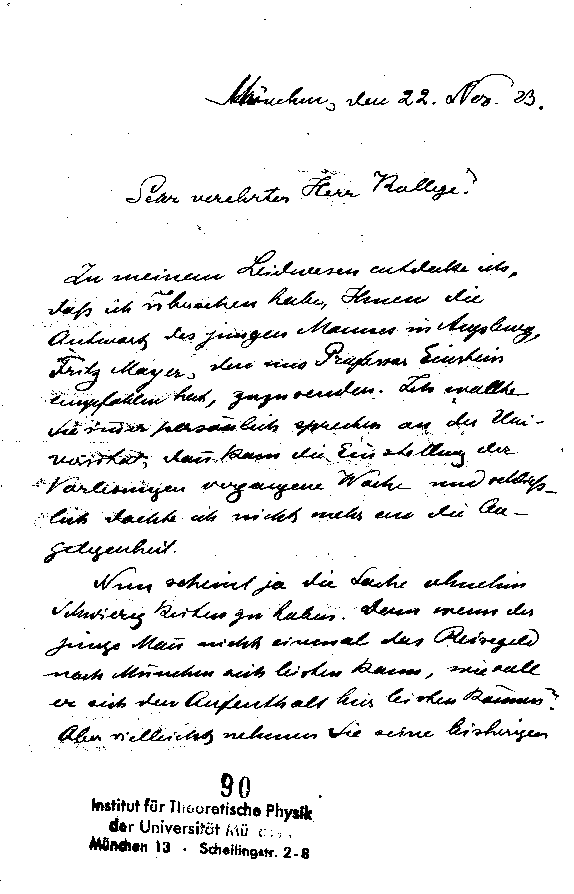 München, den 22. Nov. 23.
Sehr verehrter Herr Kollege!
Zu meinem Leidwesen entdecke ich,
daß ich versäumt habe, Ihnen die
Antwort des jungen Mannes in Augsburg,
Fritz Mayer, den uns Professor Einstein
empfohlen hat, zuzusenden. Ich wollte
Sie immer persönlich sprechen an der Uni-
versität, dann kam die Einstellung der
Vorlesungen vergangene Woche und schließ-
lich dachte ich nicht mehr an die An-
gelegenheit.
Nun scheint ja die Sache ohnehin
Schwierigkeiten zu haben. Denn wenn der
junge Mann nicht einmal das Reisegeld
nach München sich leisten kann, wie soll
er sich den Aufenthalt hier leisten können?
Aber vielleicht nehmen Sie seine bisherigen
90
Institut für Theoretische Physik
der Universität Mü
München 13 · Schellingstr. 2-8